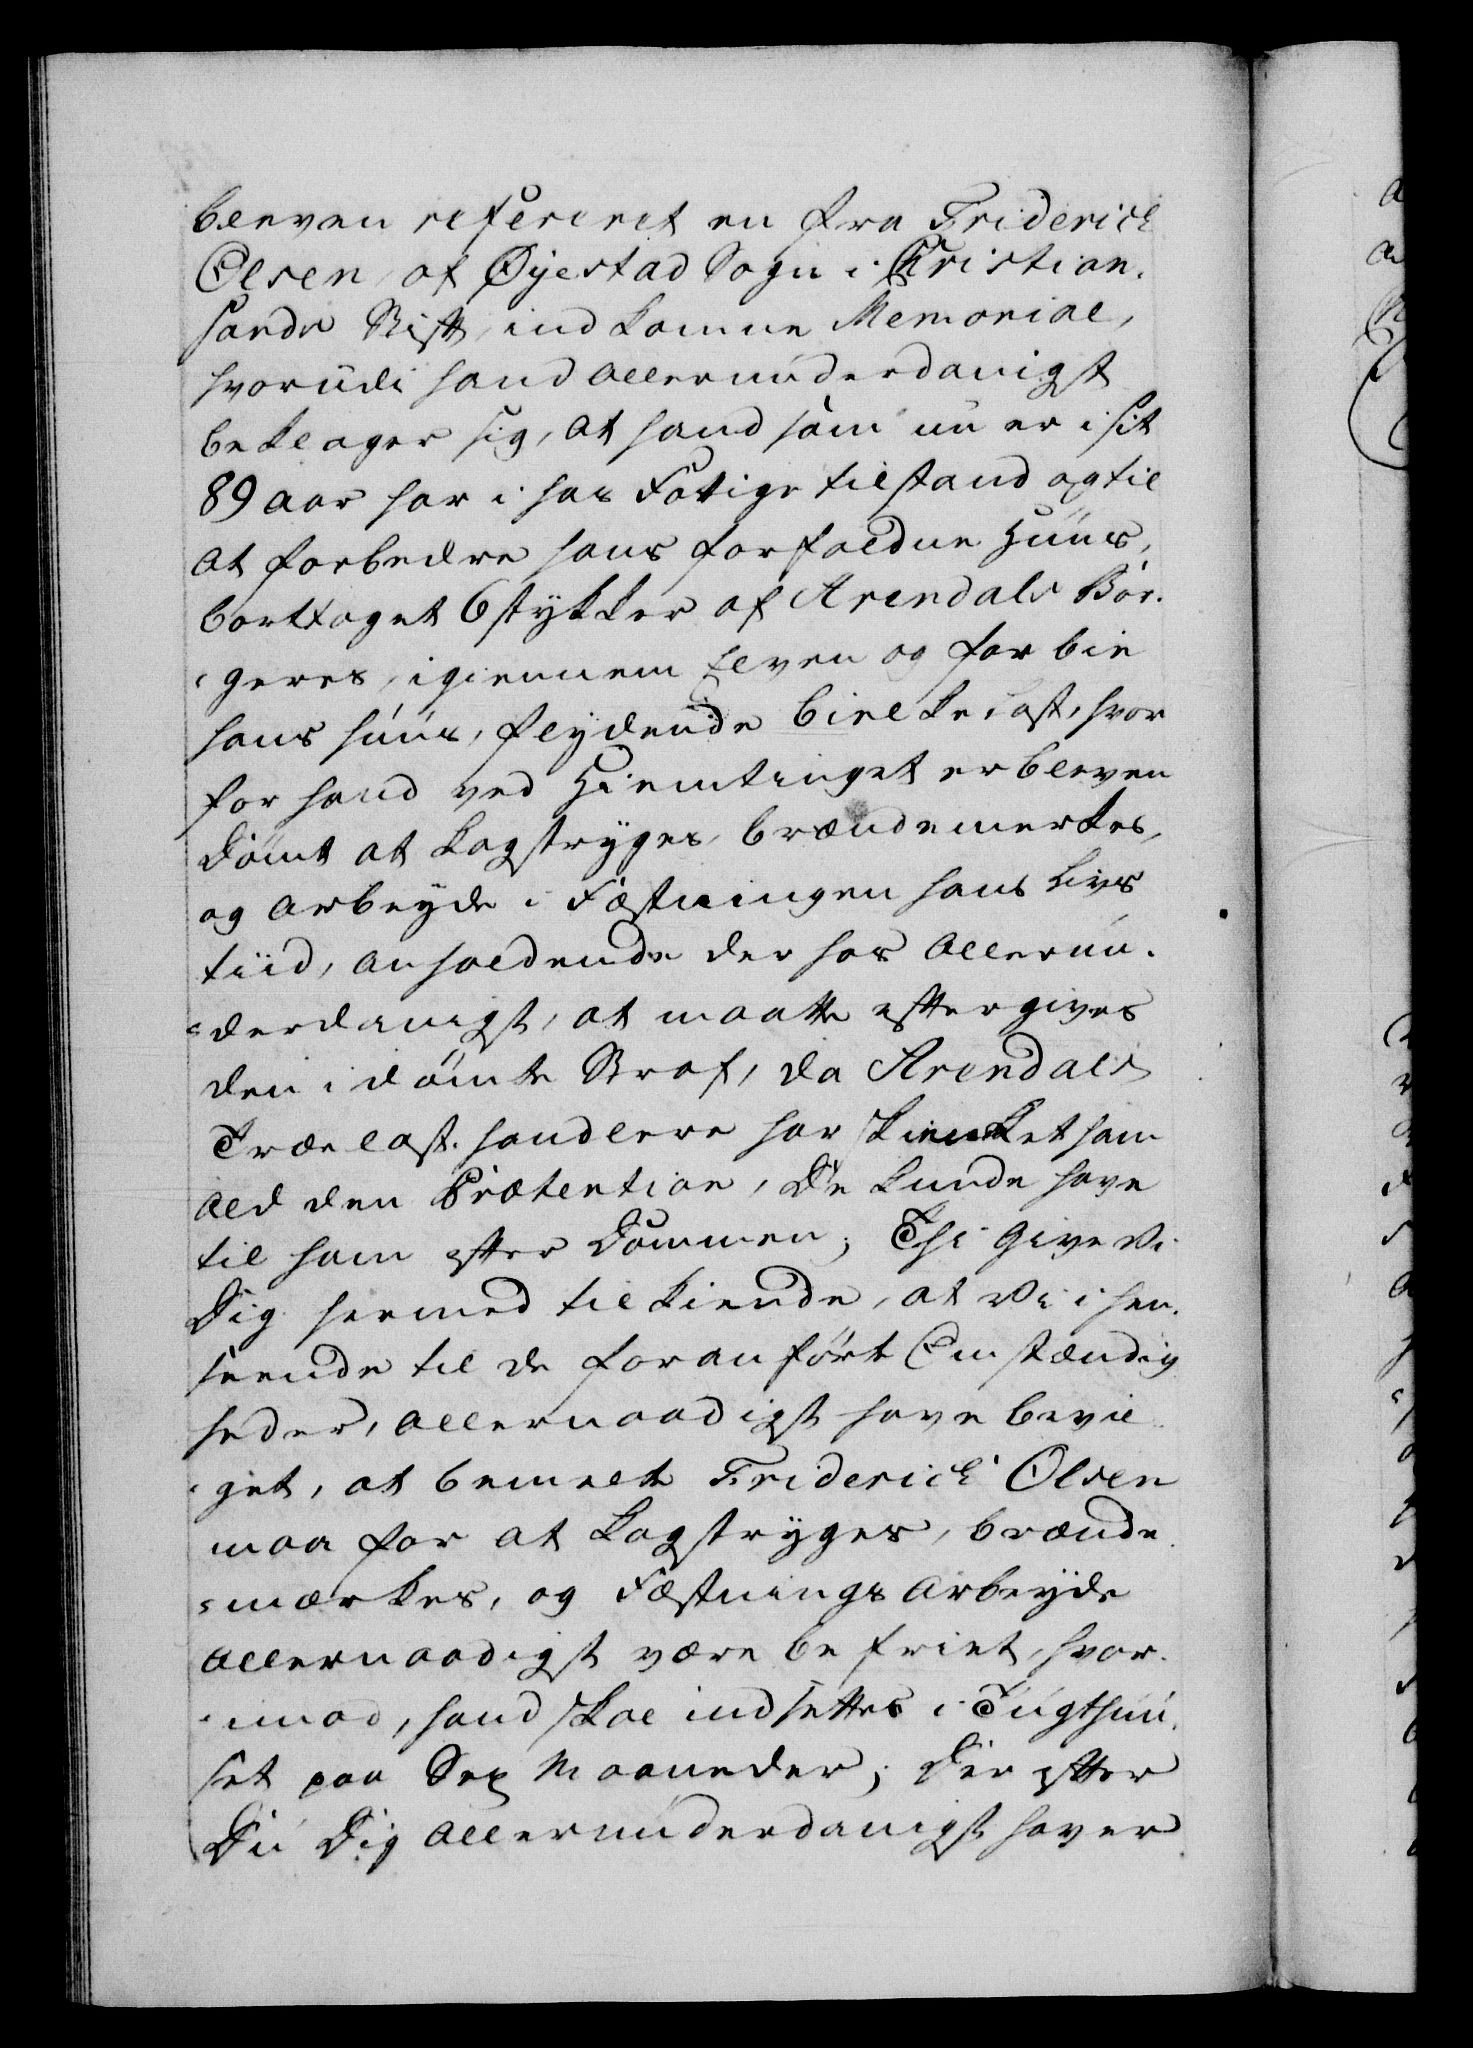 bleven refereret en fra Friderich
Olsen af Øyestad Sogn i Christian-
sands Stift, indkomne Memorial,
hvorudi hand allerunderdanigst
beklager sig, at hand som nu er i sit
89 aar har i sin Fattige tilstand og til
at forbedre hans forfaldne Huus,
borttaget 6 stykker af Arendals Bor-
geres, igiennem Elven og forbie
hans huus, flydende bielke last, hvor
for hand ved Hiemtinget er bleven
dømt at Kagstryges, brændemerkes,
og arbeyde i Fæstningen hans Livs
tiid, anholdende der hos allerun-
derdanigst, at maatte eftergives
den idømte Straf, da Arendals
Trælast-handlere har skienket ham
ald den Prætention, De kunde have
til ham efter Dommen; Thi give Vi
Dig hermed tilkiende, at Vi i hen-
seende til de foranført Omstændig
heder, allernaadigst have bevil-
get, at bemelte Friderich Olsen
maa for at Kagstryges, brænde-
mærkes, og Fæstnings arbeyde
allernaadigst være befriet, hvor-
imod, hand skal indsættes i Tugthuu-
set paa Sex Maaneder; Der efter
Du Dig allerunderdanigst haver